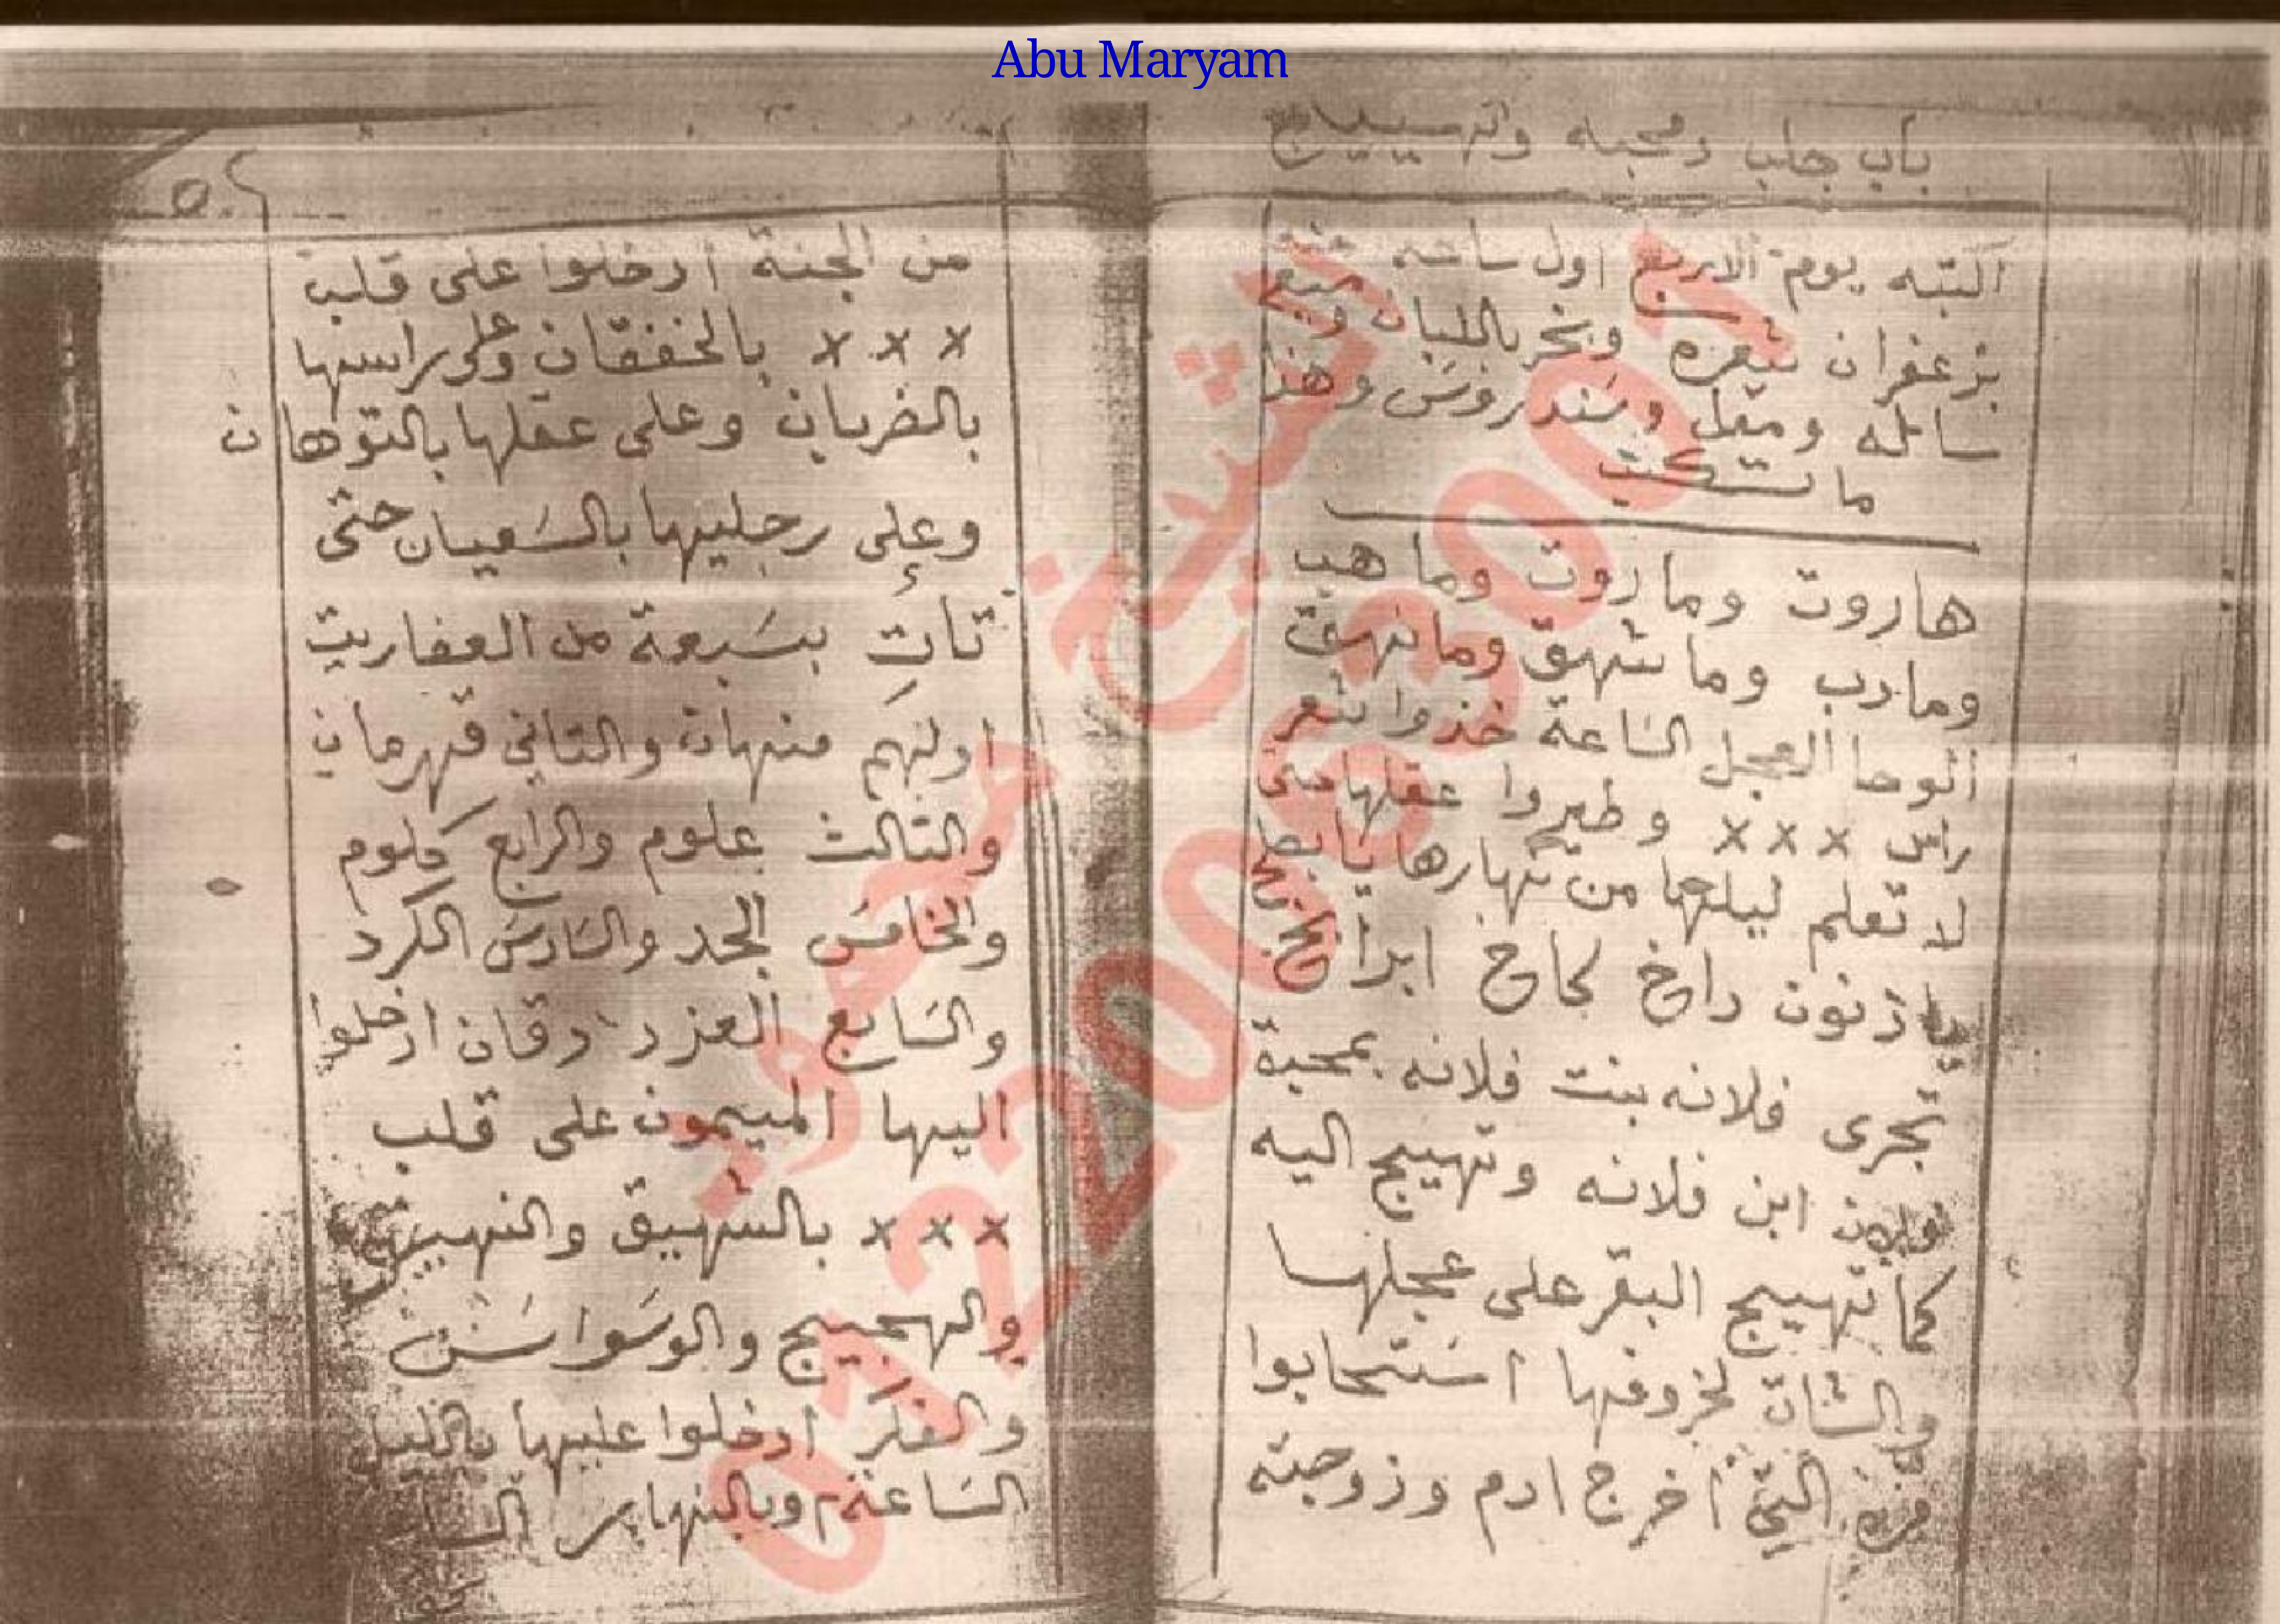 Abu Maryam
باب جلب ومحبه وتهييج
اكتبه يوم الاربع اول ساعه
بزعفران وبخر باللبان وميعه
سائله ومقل وسندروس وهذا
ما تكتب
هاروت وماروت وما هب
ومارب وما شهق وما نهق
الوحا العجل الساعة خذوا شعر
راس × × × وطيروا عقلها حتى
لا تعلم ليلها من نهارها يا
يا زنون داخ كاخ ابراخ
تجرى فلانه بنت فلانه بمحبة
فلان ابن فلانه وتهييج اليه
كما تهييج البقر على عجلها
والشات لخروفها استحابوا
التى اخرج ادم وزوجته
من الجنة ادخلوا على قلب
× × × بالخفقان وعلى راسها
بالضربان وعلى عقلها بالتوهان
وعلى رجليها بالسعيان حتى
تأت بسبعة من العفاريت
اولهم منهات والتانى قهرمان
والتالت علوم والرابع كلوم
والخامس الجد والسادس الكرد
والسابع العزد دقان ادخلوا
اليها الميمون على قلب
× × × بالشهيق والنهيق
والهجيج والوسواس
والفكر ادخلوا عليها بالليل
الساعة وبالنهار
الشيخ محمود
01220053007